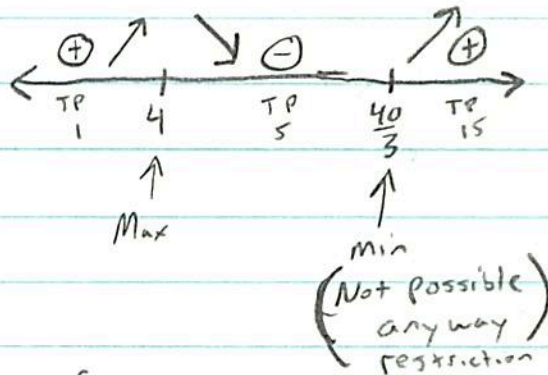 ⊕ ⊖ ⊕
TP TP TP
1 4 5 40/3 15
Max
Min
(Not possible
any way
restriction)